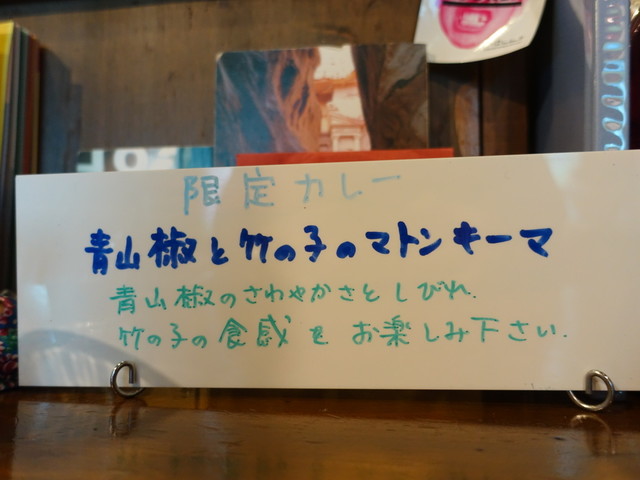 限定カレー
青山椒と竹の子のマトンキーマ
青山椒のさわやかさとしびれ.
竹の子の食感をお楽しみ下さい.